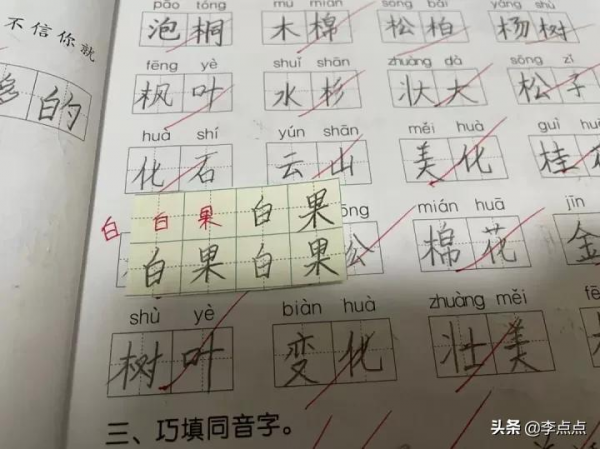 不信你就
的
pāo tóng mù mián sōng bǎi yáng shù
泡桐 木棉 松柏 杨树
fēng yè shuǐ shān zhuàng dà sōng zǐ
枫叶 水杉 壮大 松子
huà shí yún shān měi huà guì
化石 云山 美化 桂
白 白果白果 mián huā jīn
白果白果 公 棉花 金
shù yè biàn huà zhuàng měi
树叶 变化 壮美
三、巧填同音字。
头条 @李点点